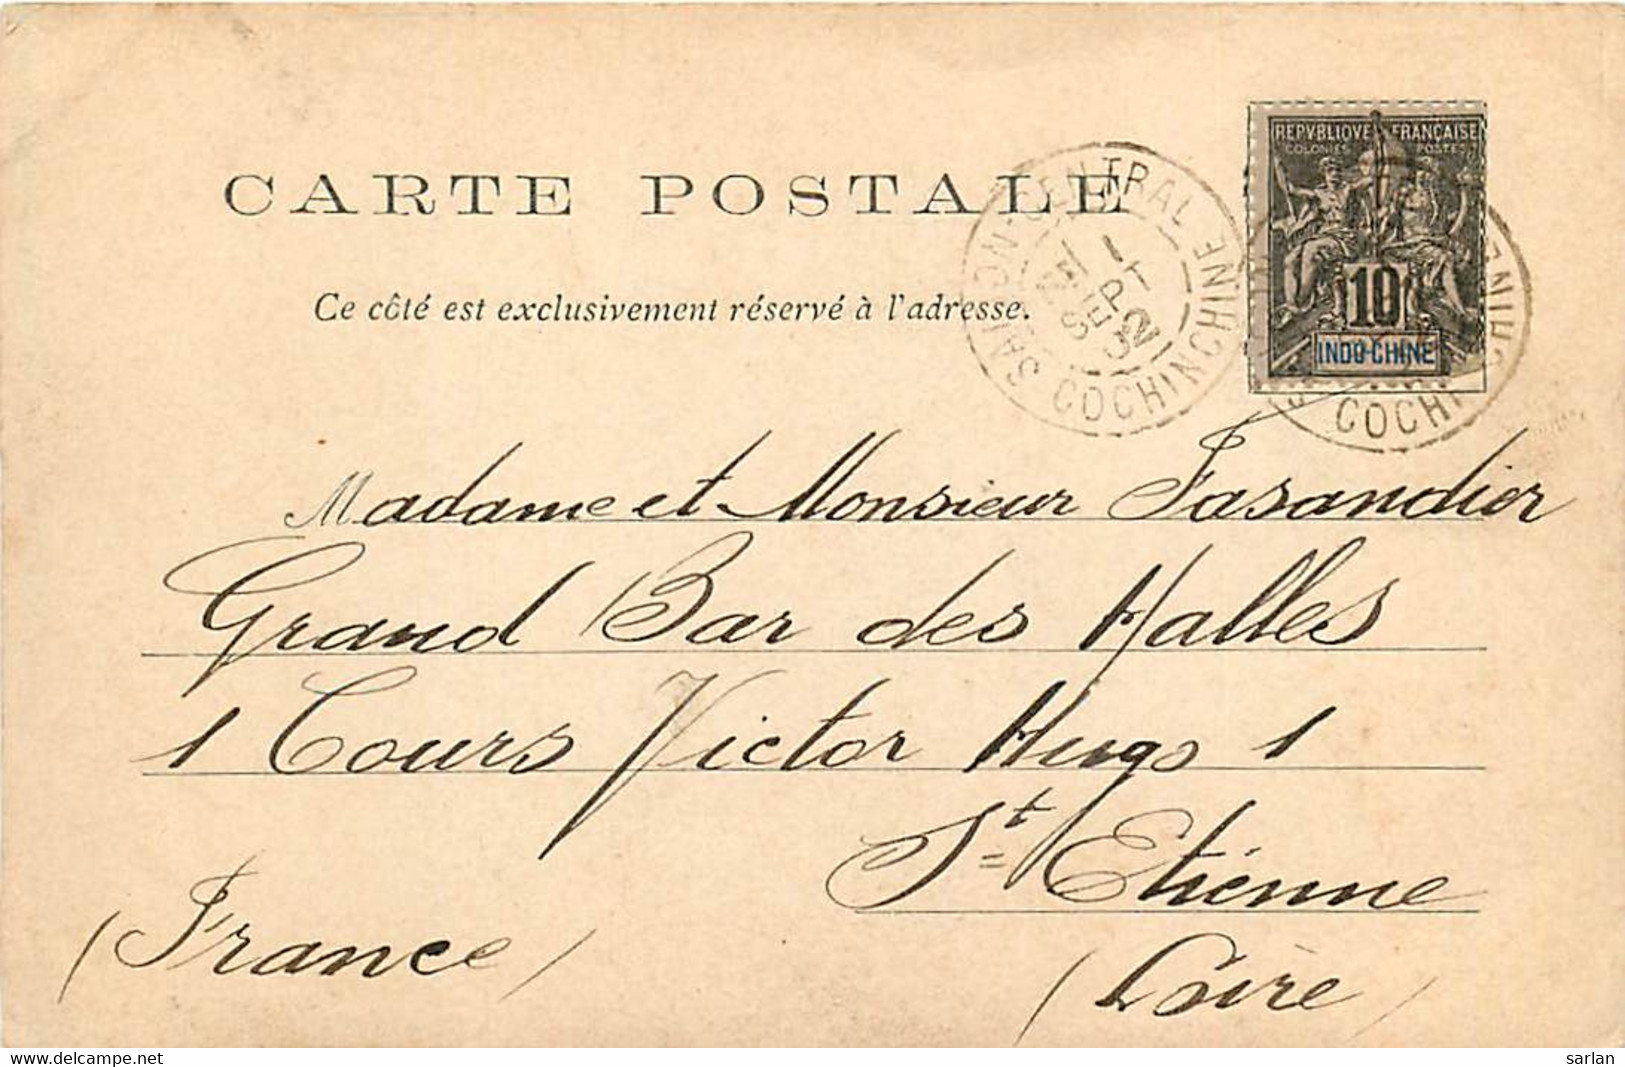 REPVBLIQVE FRANÇAISE
COLONIES POSTES
10
INDO-CHINE
SAIGON-CENTRAL
1
SEPT
02
COCHINCHINE
CARTE POSTALE
Ce côté est exclusivement réservé à l'adresse.
Madame et Monsieur Fasandier
Grand Bar des Halles
1 Cours Victor Hugo 1
St Etienne
(France)
(Loire)
delcampe.net
sarlan